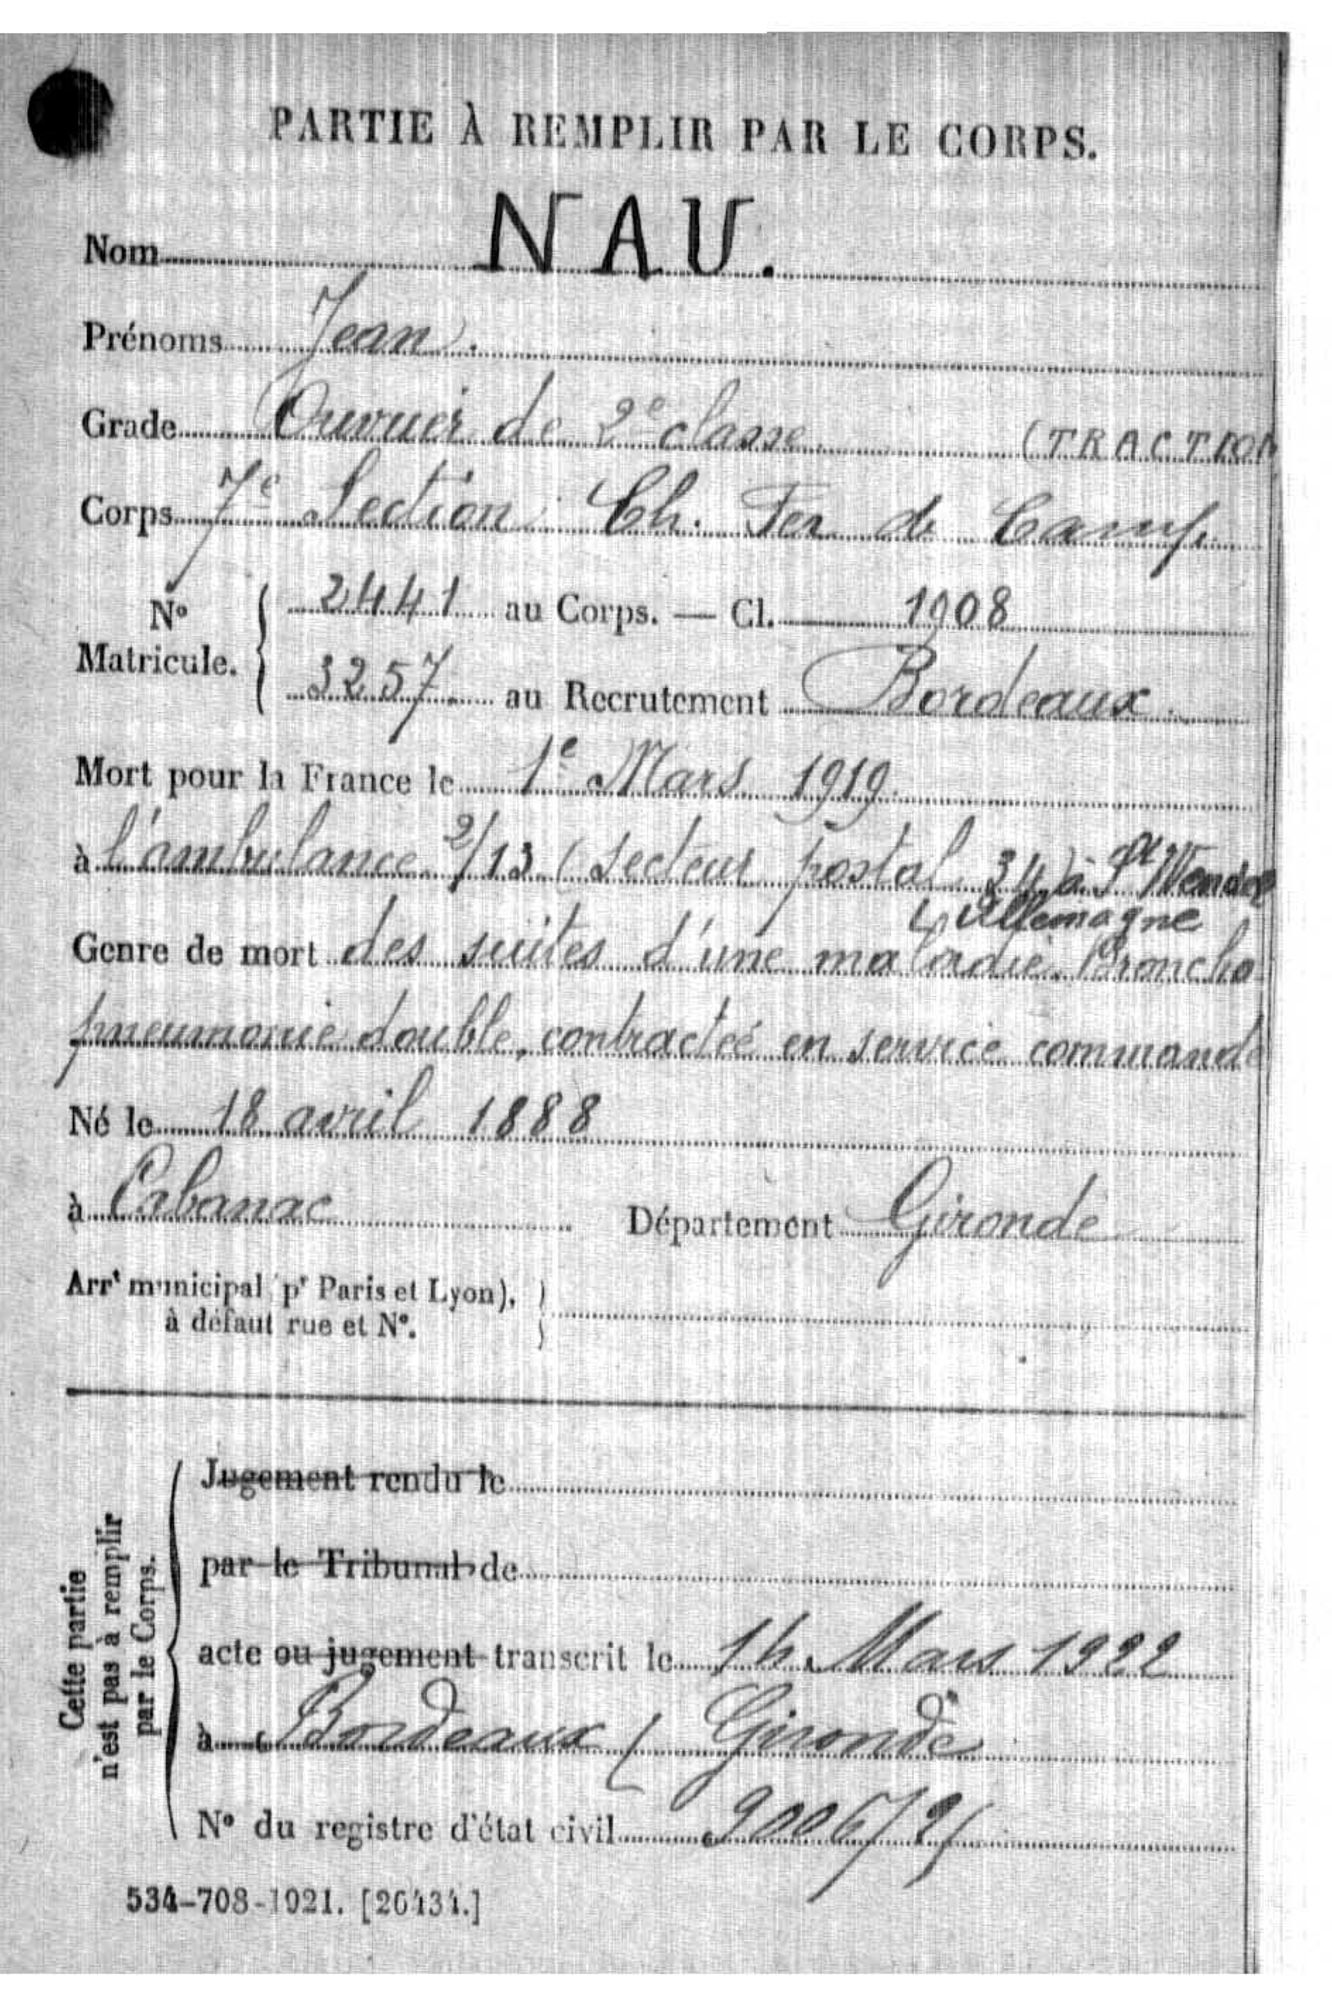 PARTIE À REMPLIR PAR LE CORPS.
Nom NAU.
Prénoms Jean.
Grade Ouvrier de 2e classe (TRACTION
Corps 7e Section Ch. Fer de Camp.
No Matricule. 2441 au Corps. — Cl. 1908
3257. au Recrutement Bordeaux.
Mort pour la France le 1e Mars 1919.
à l'ambulance 2/13 (secteur postal 34) à St Wendel
Allemagne
Genre de mort des suites d'une maladie. Broncho
pneumonie double, contractée en service commandé
Né le 18 avril 1888
à Cabanac Département Gironde
Arrt municipal (pr Paris et Lyon),
à défaut rue et No.
Cette partie
n'est pas à remplir
par le Corps.
Jugement rendu le
par le Tribunal de
acte ou jugement transcrit le Mars 1922
à Bordeaux (Gironde
No du registre d'état civil
534-708-1921. [26434.]